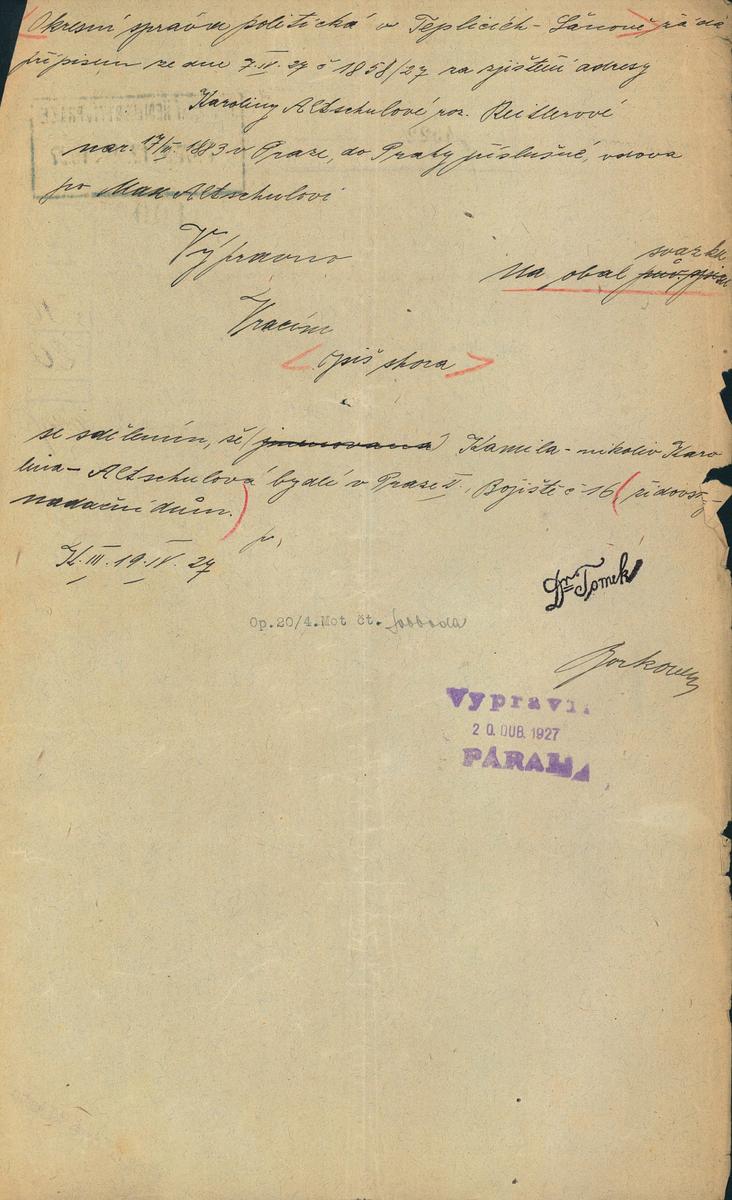 Okresní správa politická v Teplicích-Šanově žádá
přípisem ze dne 7.IV.27 č 1858/27 za zjištění adresy
Karoliny Altschulové roz. Reitlerové
nar. 17/III. 1883 v Praze, do Prahy příslušné, vdova
po Max Altschulovi
Výpravno
svazku
Na obal
Vracím
opiš shora
se sdělením, že (jmenovaná) Kamila - nikoliv Karo
lina - Altschulová bydlí v Praze II. Bojiště č 16 (židovský
nadační dům.)
K.III. 19.IV. 27
Dr Tomek
Op.20/4.Mot čt. Svoboda
Borkovec
Vypravil
20. DUB. 1927
PÁRAL